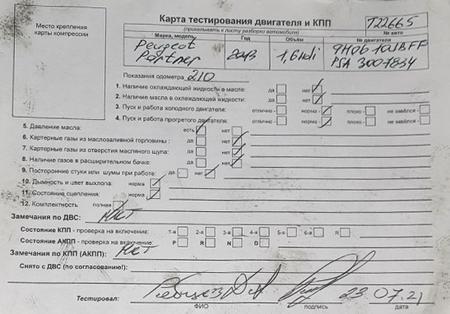 Место крепления
карты компрессии
Карта тестирования двигателя и КПП
(прикалывать к листу разборки автомобиля)
T22665
№ авто
Марка, модель
Год
Объём
№ ДВС
Peugeot
Partner
1,6 hdi
PSA 3001834
Показания одометра 210
1. Наличие охлаждающей жидкости в масле: да нет
2. Наличие масла в охлаждающей жидкости: да нет
3. Пуск и работа холодного двигателя: отлично- норма- плохо- не завёлся-
4. Пуск и работа прогретого двигателя: отлично- норма- плохо- не завёлся-
5. Давление масла: есть нет
6. Картерные газы из маслозаливной горловины: да нет
7. Картерные газы из отверстия масляного щупа: да нет
8. Наличие газов в расширительном бачке: да нет
9. Посторонние стуки или шумы при работе: да нет
10. Дымность и цвет выхлопа: норма
11. Состояние сцепления: норма
12. Комплектность полная
Замечания по ДВС: Нет
Состояние КПП - проверка на включение: 1-я 2-я 3-я 4-я 5-я 6-я З.Х.
Состояние АКПП - проверка на включение: P R N D
Замечания по КПП (АКПП): Нет
Снято с ДВС (по согласованию!):
Тестировал: 23.07.21
ФИО подпись дата